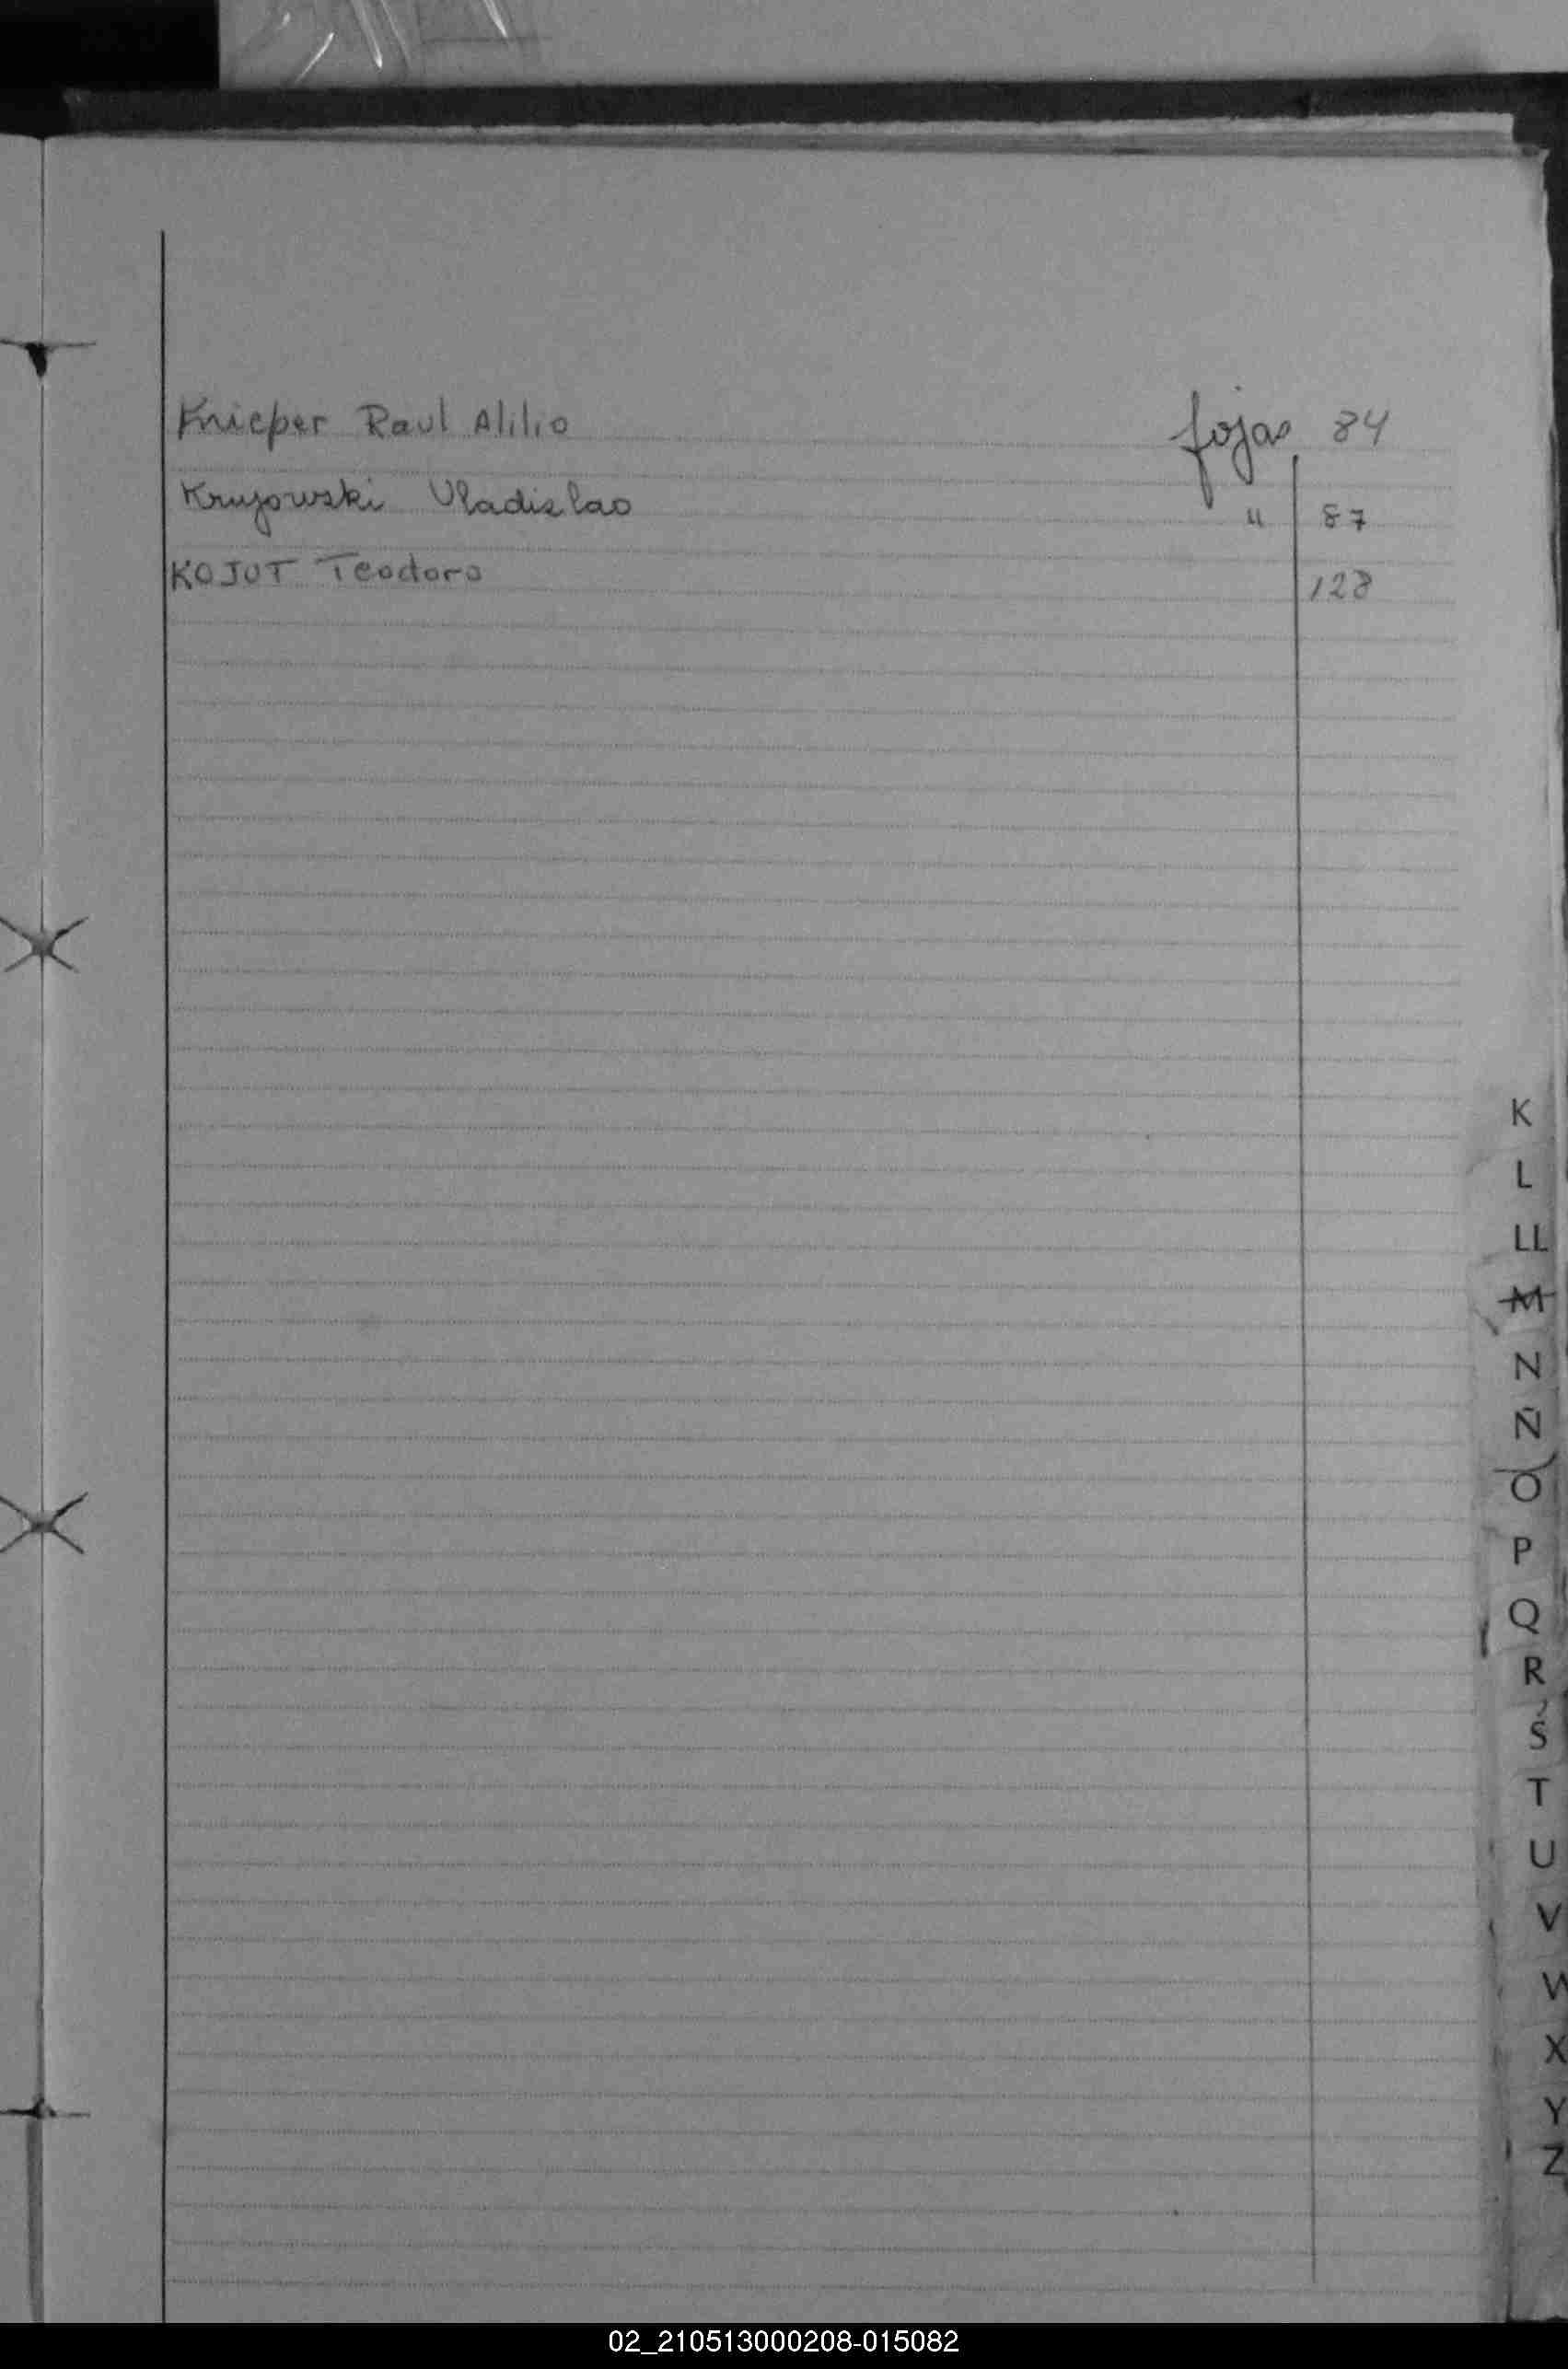 Knieper Raul Alilio fojas 84
Krujowski Vladislao " 87
KOJUT Teodoro 128
K
L
LL
M
N
Ñ
O
P
Q
R
S
T
U
V
W
X
Y
Z
02_210513000208-015082